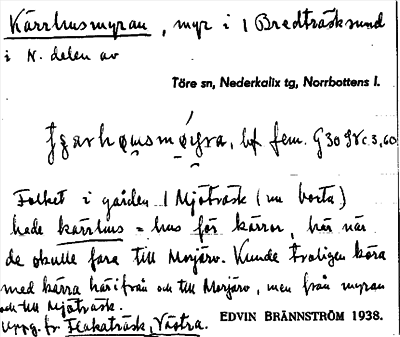 Kärrhusmyran, myr i 1 Bredträsksund
i N. delen av
Töre sn, Nederkalix tg, Norrbottens l.
bf fem. G30 3,60
Folket i gården 1 Mjöträsk (nu borta)
hade kärrhus = hus för kärror, här när
de skulle fara till Morjärv. Kunde troligen köra
med kärra härifrån och till Morjärv, men från myran
och till Mjöträsk.
Uppg. fr Flakaträsk, Västra. EDVIN BRÄNNSTRÖM 1938.